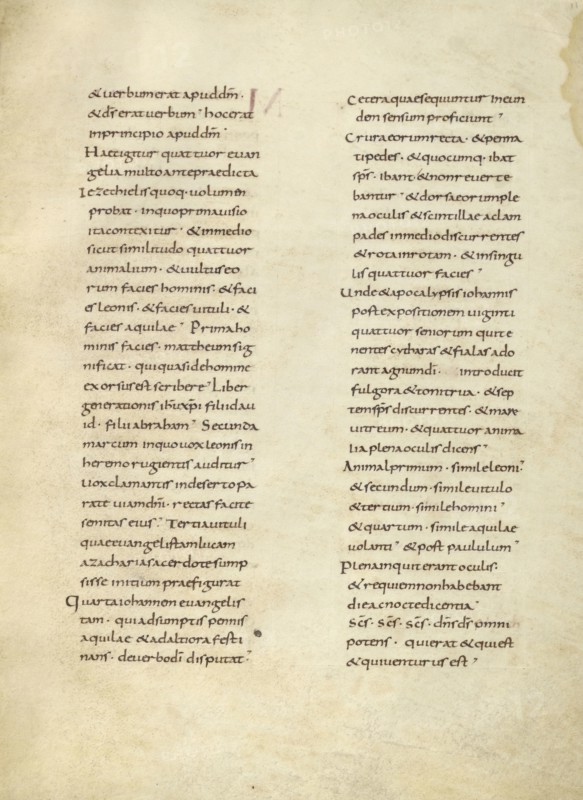 & uerbum erat apud dm̄ ·
& ds̄ erat uerbum · hoc erat
in principio apud dm̄ ·
Haec igitur quattuor euan
gelia multo ante praedicta
Iezechielis quoq· uolumen
probat · in quo prima uisio
ita contexitur · & in medio
sicut similitudo quattuor
animalium · & uultus eo
rum facies hominis · & faci
es leonis · & facies uituli · &
facies aquilae · Prima ho
minis facies · mattheum sig
nificat · qui quasi de homine
exorsus est scribere · Liber
generationis ihū xp̄i filii dau
id · filii abraham · Secunda
marcum in quo uox leonis in
heremo rugientis auditur ·
Uox clamantis in deserto pa
rate uiam dn̄i · rectas facite
semitas eius · Tertia uituli
quae euangelistam lucam
a zacharia sacerdote sump
sisse initium praefigurat
Quarta iohannem euangelis
tam · qui adsumptis pennis
aquilae & ad altiora festi
nans · de uerbo dī disputat ·
Cetera quae sequuntur in eun
dem sensum proficiunt ·
Crura eorum recta · & penna
ti pedes · & quocumq· ibat
sps̄ · ibant · & non reuerte
bantur · & dorsa eorum ple
na oculis & scintillae ac lam
pades in medio discurrentes
& rota in rotam · & in singu
lis quattuor facies ·
Unde & apocalypsis iohannis
post expositionem uiginti
quattuor seniorum qui te
nentes cytharas & fialas ado
rant agnum dī · introducit
fulgora & tonitrua · & sep
tem sps̄ discurrentes · & mare
uitreum · & quattuor anima
lia plena oculis dicens ·
Animal primum · simile leoni ·
& secundum · simile uitulo
& tertium · simile homini ·
& quartum · simile aquilae
uolanti · & post paululum ·
Plena inquit erant oculis ·
& requiem non habebant
die ac nocte dicentia ·
Scs̄ · Scs̄ · Scs̄ · dn̄s ds̄ omni
potens · qui erat & qui est
& qui uenturus est ·